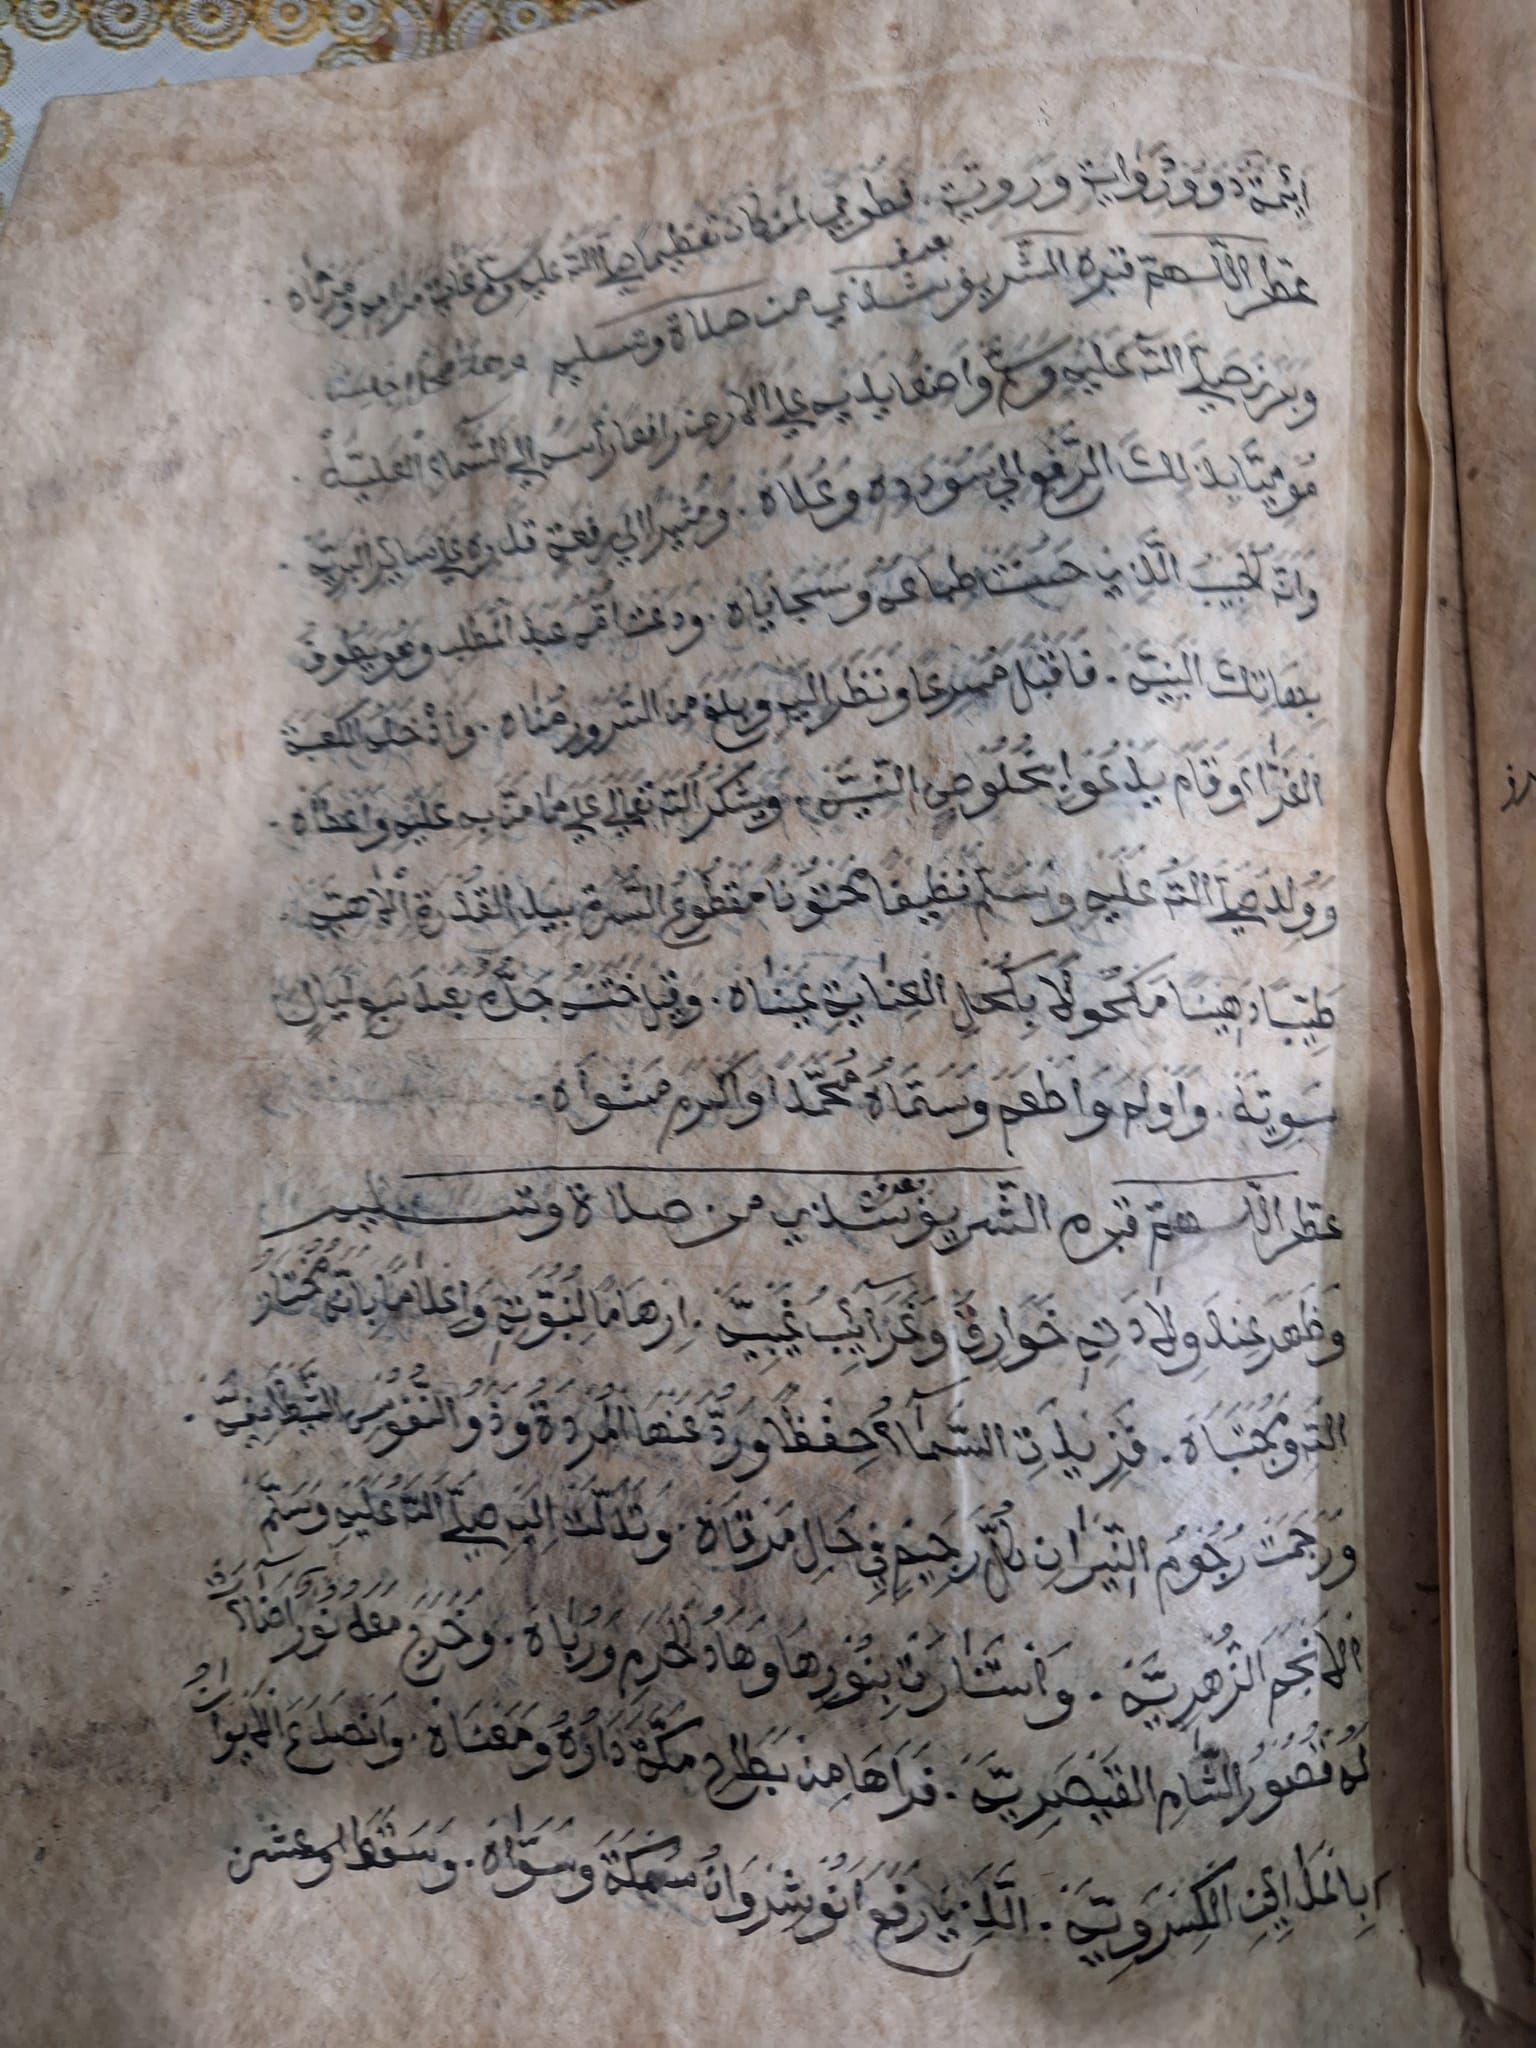 اَئِمَّةٌ ذَوُوْ رِوَايَةٍ وَرَوِيَّةٍ. فطوبى لمن كان تعظيمه صلى الله عليه وسلم غاية مرامه ومرماه.
عطر اللهم قبره الشريف بعرف شذي من صلاة وتسليم
وبرز صلى الله عليه وسلم واضعا يديه على الارض رافعا رأسه الى السماء العلية.
مُومِيًا بِذَلِكَ الرَّفْعِ اِلى سُوْدَدِهِ وَعُلَاهُ. ومشيرا الى رفعة قدره على سائر البرية.
وَاَنَّهُ الْحَبِيْبُ الَّذِيْ حَسُنَتْ طباعه وسجاياه. ودعت امه عبد المطلب وهو يطوف
بِهَاتِكَ الْبَنِيَّةِ. فَاَقْبَلَ مُسْرِعًا وَنَظَرَ اِلَيْهِ وبلغ من السرور مُنَاهُ. وَاَدْخَلَهُ الكعبة
الْغَرَّاءَ وَقَامَ يَدْعُوْا بِخُلُوْصِ النِّيَّةِ. وَيَشْكُرُ الله تعالى على ما مَنَّ بِهِ عَلَيْهِ وَاَعْطَاهُ.
وَوُلِدَ صلى الله عَلَيْهِ وَسَلَّمَ نَظِيفًا مَخْتُوْنًا مَقْطُوْعَ السُّرَّةِ بِيَدِ الْقُدْرَةِ الْاِلٰهِيَّةِ.
طَيِّبًا دَهِيْنًا مَكْحُوْلًا بِكُحْلِ الْعِنَايَةِ عَيْنَاهُ. وَقِيْلَ خَتَنَهُ جَدُّهُ بَعْدَ سَبْعِ لَيَالٍ
سَوِيَّةً. وَاَوْلَمَ وَاَطْعَمَ وَسَمَّاهُ مُحَمَّدًا وَاَكْرَمَ مَثْوَاهُ.
عطر اللهم قبره الشَّريف بعرف شذي من صلاة وتسليم
وَظَهَرَ عِنْدَ وِلَادَتِهِ خَوَارِقُ وَغَرَآئِبُ غَيْبِيَّةٌ. اِرْهَاصًا لِنُبُوَّتِهِ وَاِعْلَامًا بِاَنَّهُ مُخْتَارُ
اللهِ وَمُجْتَبَاهُ. فَزِيْدَتِ السَّمَآءُ حِفْظًا وَرُدَّ عَنْهَا الْمَرَدَةُ وَذَوُو النُّفُوْسِ الشَّيْطَانِيَّةِ.
وَرَجَمَتْ رُجُوْمُ النَّيِّرَاتِ كُلَّ رَجِيْمٍ فِي حَالِ مَرْقَاهُ. وَتَدَلَّتْ اِلَيْهِ صلى الله عَلَيْهِ وَسَلَّمَ
الْاَنْجُمُ الزُّهْرِيَّةُ. وَاسْتَنَارَتْ بِنُوْرِهَا وِهَادُ الْحَرَمِ وَرُبَاهُ. وَخَرَجَ مَعَهُ نُوْرٌ اَضَآءَتْ
لَهُ قُصُوْرُ الشَّامِ الْقَيْصَرِيَّةُ. فَرَاَهَا مَنْ بِطَاحُ مَكَّةَ دَارُهُ وَمَغْنَاهُ. وَانْصَدَعَ الْاِيْوَانُ
بِالْمَدَائِنِ الْكِسْرَوِيَّةِ. الَّذِيْ رَفَعَ اَنُوْشِرْوَانُ سَمْكَهُ وَسَوَّاهُ. وَسَقَطَ اربع عشر